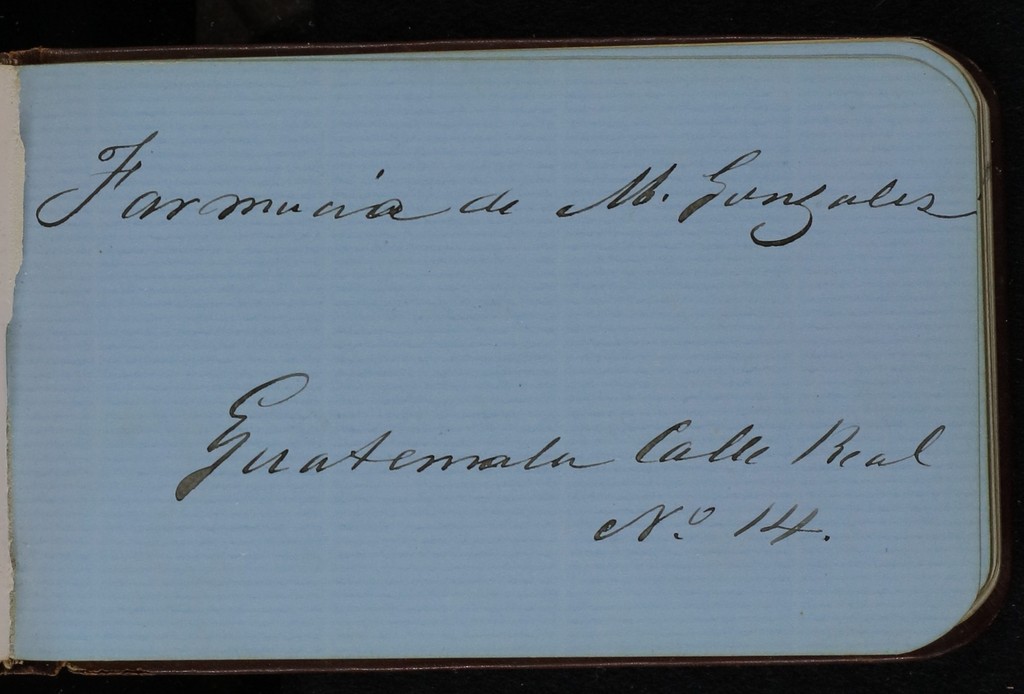 Farmacia de M. Gonzales
Guatemala Calle Real
Nº 14.